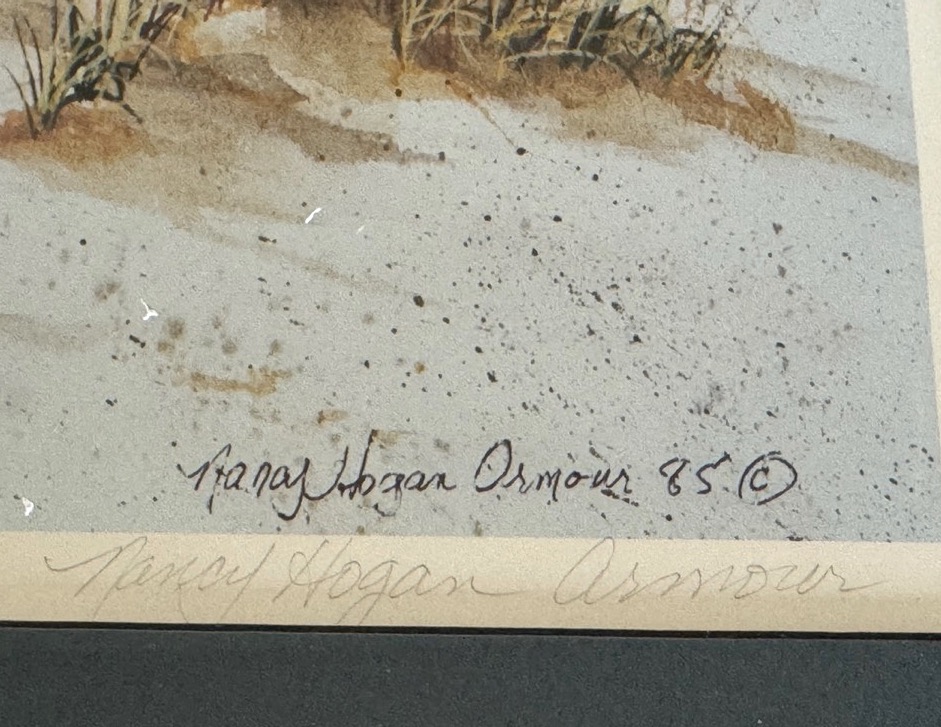 Nancy Hogan Armour 85 ©
Nancy Hogan Armour